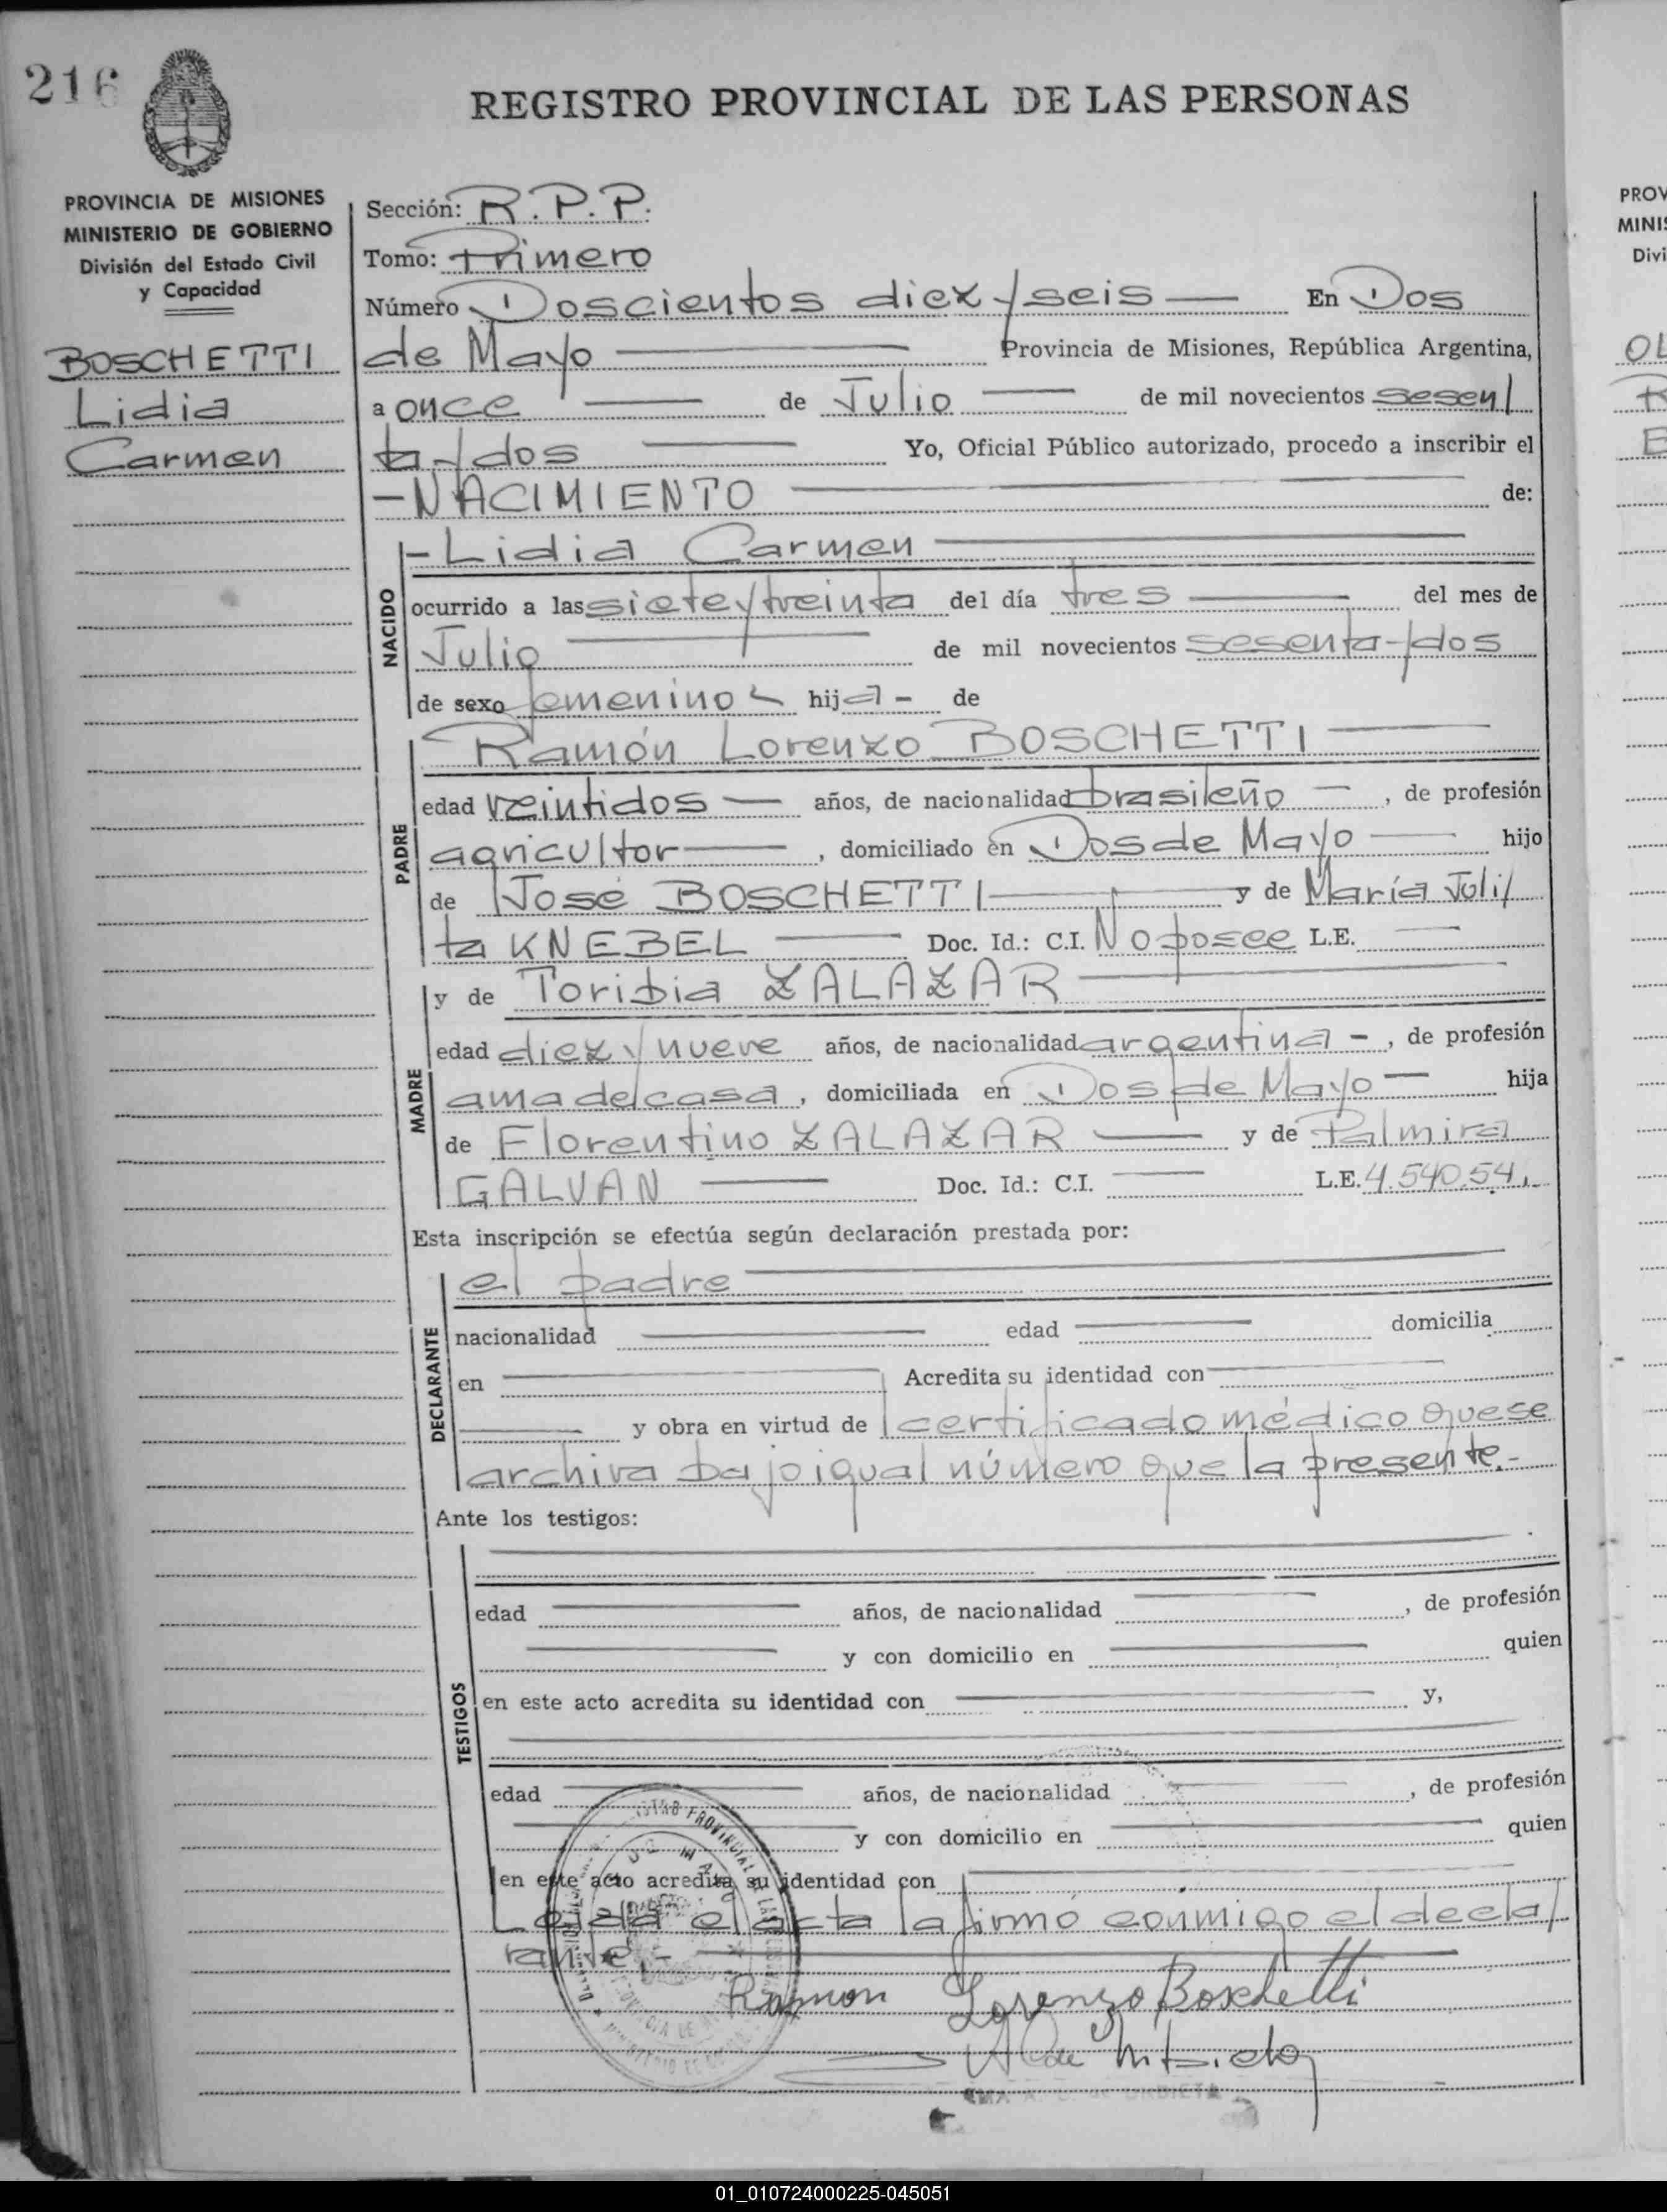 216
REGISTRO PROVINCIAL DE LAS PERSONAS
PROVINCIA DE MISIONES
MINISTERIO DE GOBIERNO
División del Estado Civil
y Capacidad
BOSCHETTI
Lidia
Carmen
Sección: R.P.P.
Tomo: Primero
Número Doscientos diez y seis — En Dos
de Mayo — Provincia de Misiones, República Argentina,
a once — de Julio — de mil novecientos sesen/
ta y dos — Yo, Oficial Público autorizado, procedo a inscribir el
-NACIMIENTO — de:
NACIDO
-Lidia Carmen —
ocurrido a las siete y treinta del día tres — del mes de
Julio — de mil novecientos sesenta y dos
de sexo femenino - hija - de
PADRE
Ramón Lorenzo BOSCHETTI —
edad veintidos — años, de nacionalidad brasileño — , de profesión
agricultor — , domiciliado en Dos de Mayo — hijo
de José BOSCHETTI — y de María Juli/
ta KNEBEL — Doc. Id.: C.I. No posee L.E. —
MADRE
y de Toribia ZALAZAR —
edad diez y nueve años, de nacionalidad argentina - , de profesión
ama de casa , domiciliada en Dos de Mayo — hija
de Florentino ZALAZAR — y de Palmira
GALVAN — Doc. Id.: C.I. — L.E. 4.540.541.
Esta inscripción se efectúa según declaración prestada por:
DECLARANTE
el padre —
nacionalidad — edad — domicilia
en — Acredita su identidad con —
— y obra en virtud de certificado médico que se
archiva bajo igual número que la presente.-
Ante los testigos:
TESTIGOS
edad — años, de nacionalidad — , de profesión
— y con domicilio en — quien
en este acto acredita su identidad con — y,
edad — años, de nacionalidad — , de profesión
— y con domicilio en — quien
en este acto acredita su identidad con —
Leida el acta la firmó conmigo el decla/
rante.- —
Ramon Lorenzo Boschetti
PROV
MINI
Divi
OL
01_010724000225-045051